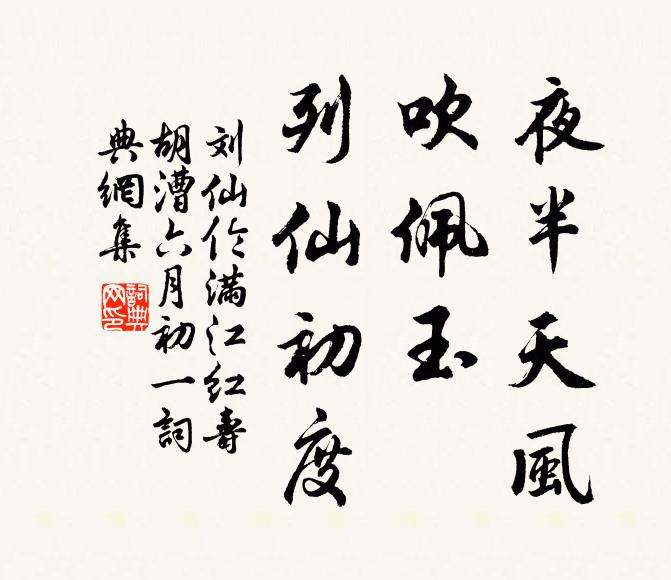 夜半天風
吹佩玉
列仙初度
刘仙伦满江红壽
胡漕六月初一詞
典網集
詞典網印